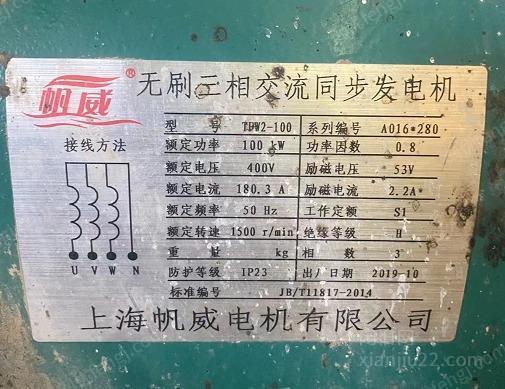 帆威® 无刷三相交流同步发电机
接线方法
U V W N
型 号 TFW2-100 系列编号 A016*280
额定功率 100 kW 功率因数 0.8
额定电压 400V 励磁电压 53V
额定电流 180.3 A 励磁电流 2.2A
额定频率 50 Hz 工作定额 S1
额定转速 1500 r/min 绝缘等级 H
重 量 kg 相 数 3
防护等级 IP23 出厂日期 2019-10
标准编号 JB/T11817-2014
上海帆威电机有限公司
xianjiu22.com